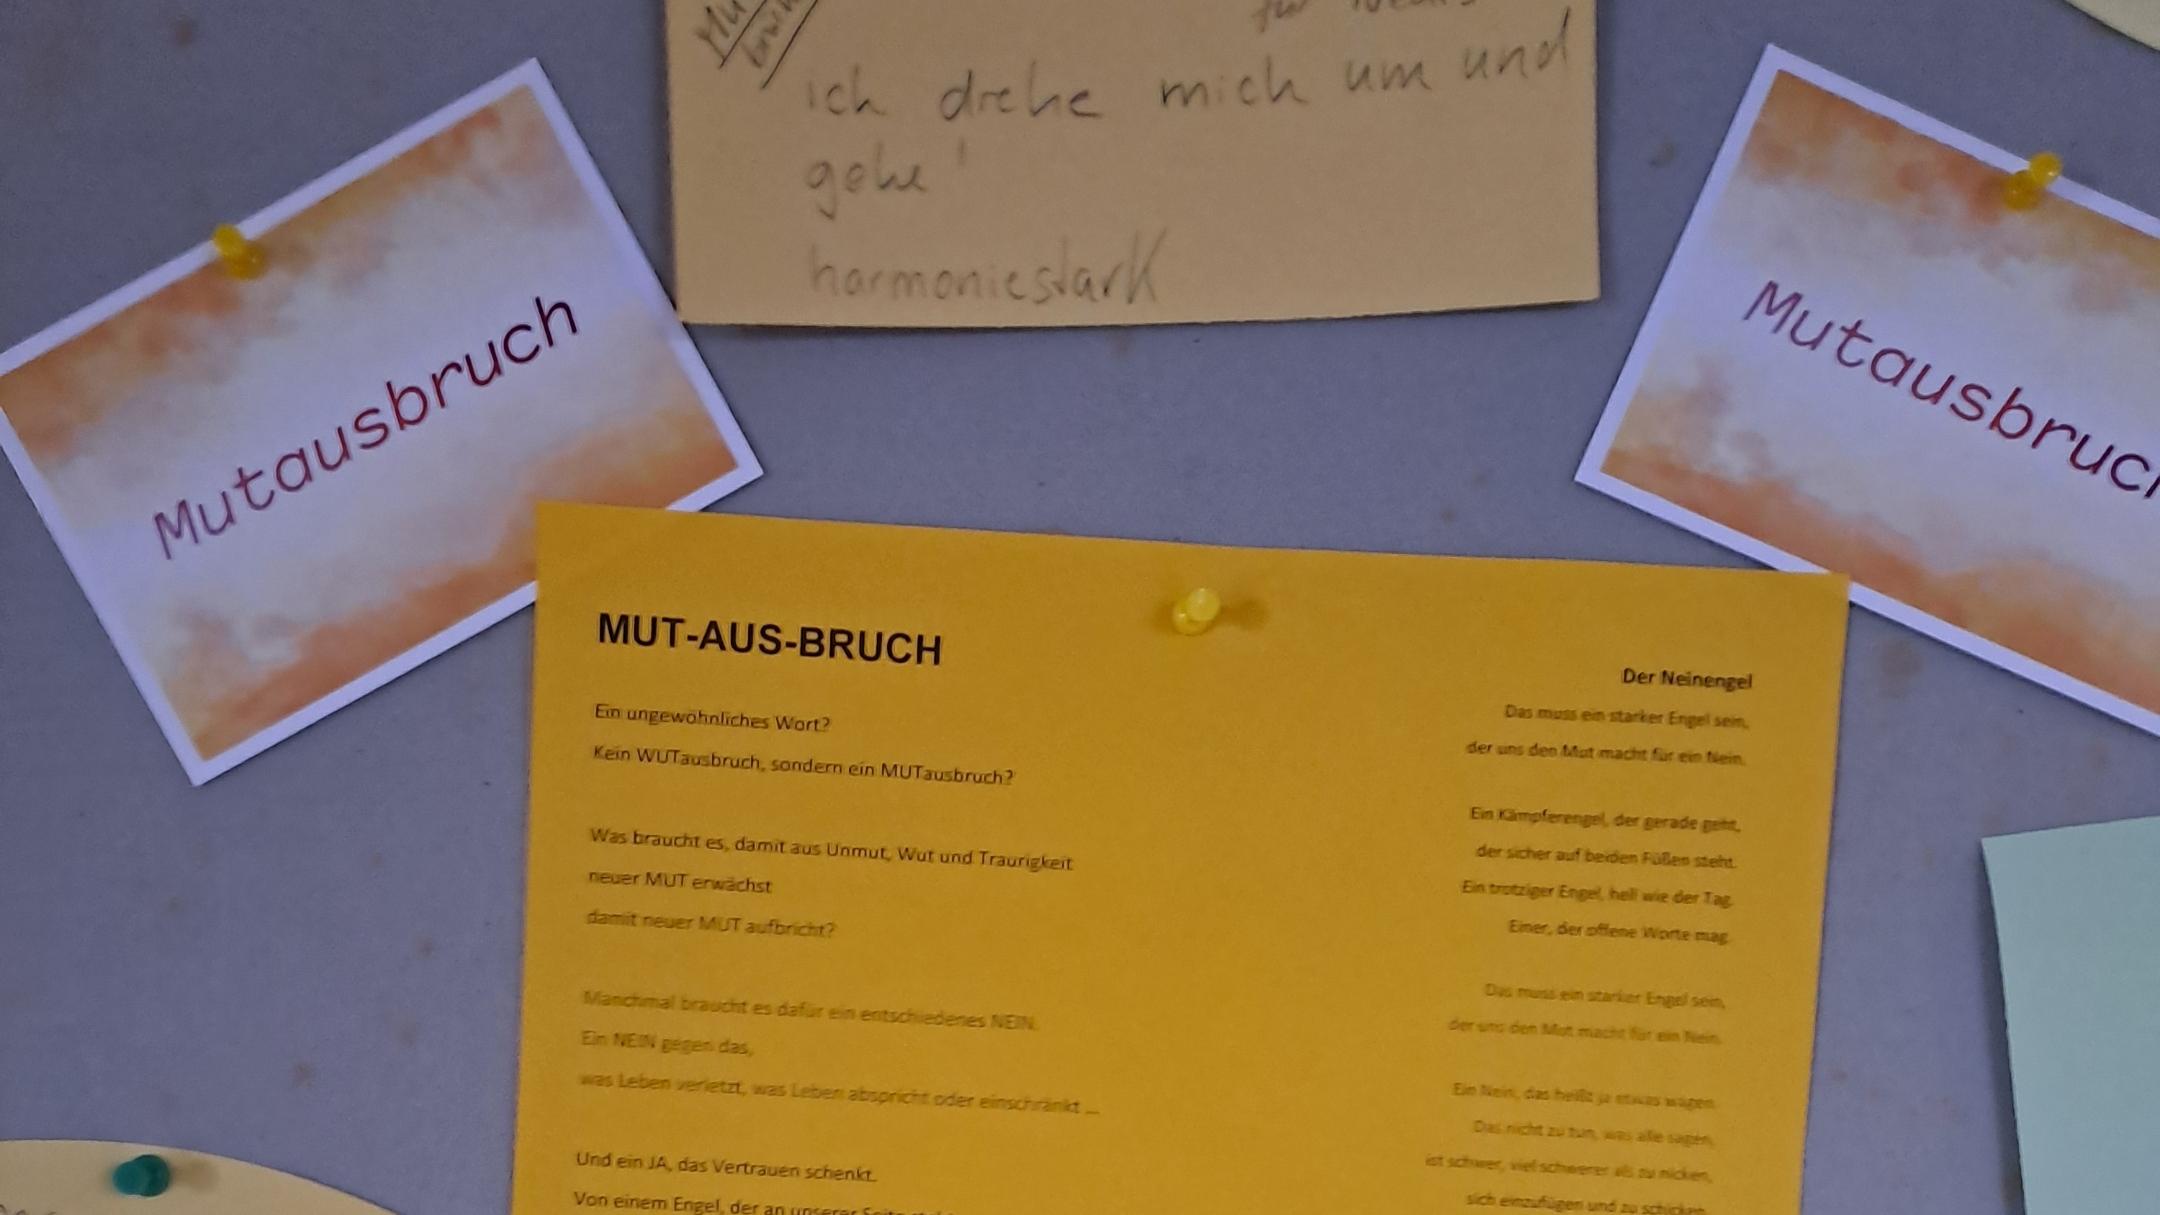 für
ich drehe mich um und
gehe!
harmoniestark
Mutausbruch
Mutausbruch
MUT-AUS-BRUCH
Ein ungewöhnliches Wort?
Kein WUTausbruch, sondern ein MUTausbruch?
Was braucht es, damit aus Unmut, Wut und Traurigkeit
neuer MUT erwächst
damit neuer MUT aufbricht?
Manchmal braucht es dafür ein entschiedenes NEIN.
Ein NEIN gegen das,
was Leben verletzt, was Leben abspricht oder einschränkt ...
Und ein JA, das Vertrauen schenkt.
Von einem Engel, der an unserer Seite
Der Neinengel
Das muss ein starker Engel sein,
der uns den Mut macht für ein Nein.
Ein Kämpferengel, der gerade geht,
der sicher auf beiden Füßen steht.
Ein trotziger Engel, hell wie der Tag.
Einer, der offene Worte mag.
Das muss ein starker Engel sein,
der uns den Mut macht für ein Nein.
Ein Nein, das heißt ja etwas wagen.
Das nicht zu tun, was alle sagen,
ist schwer, viel schwerer als zu nicken,
sich einzufügen und zu schicken.